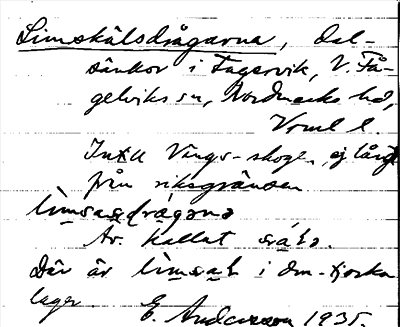 Limskålsdrågarna, dal-
sänkor i Fagervik, V. Få-
gelviks sn, Nordmarks hd,
Vrml l.
Intill Vings-skogen, ej långt
från riksgränsen
lìmsasdrágena
Är kallat
Där är i den
lager. E. Andersson 1935.